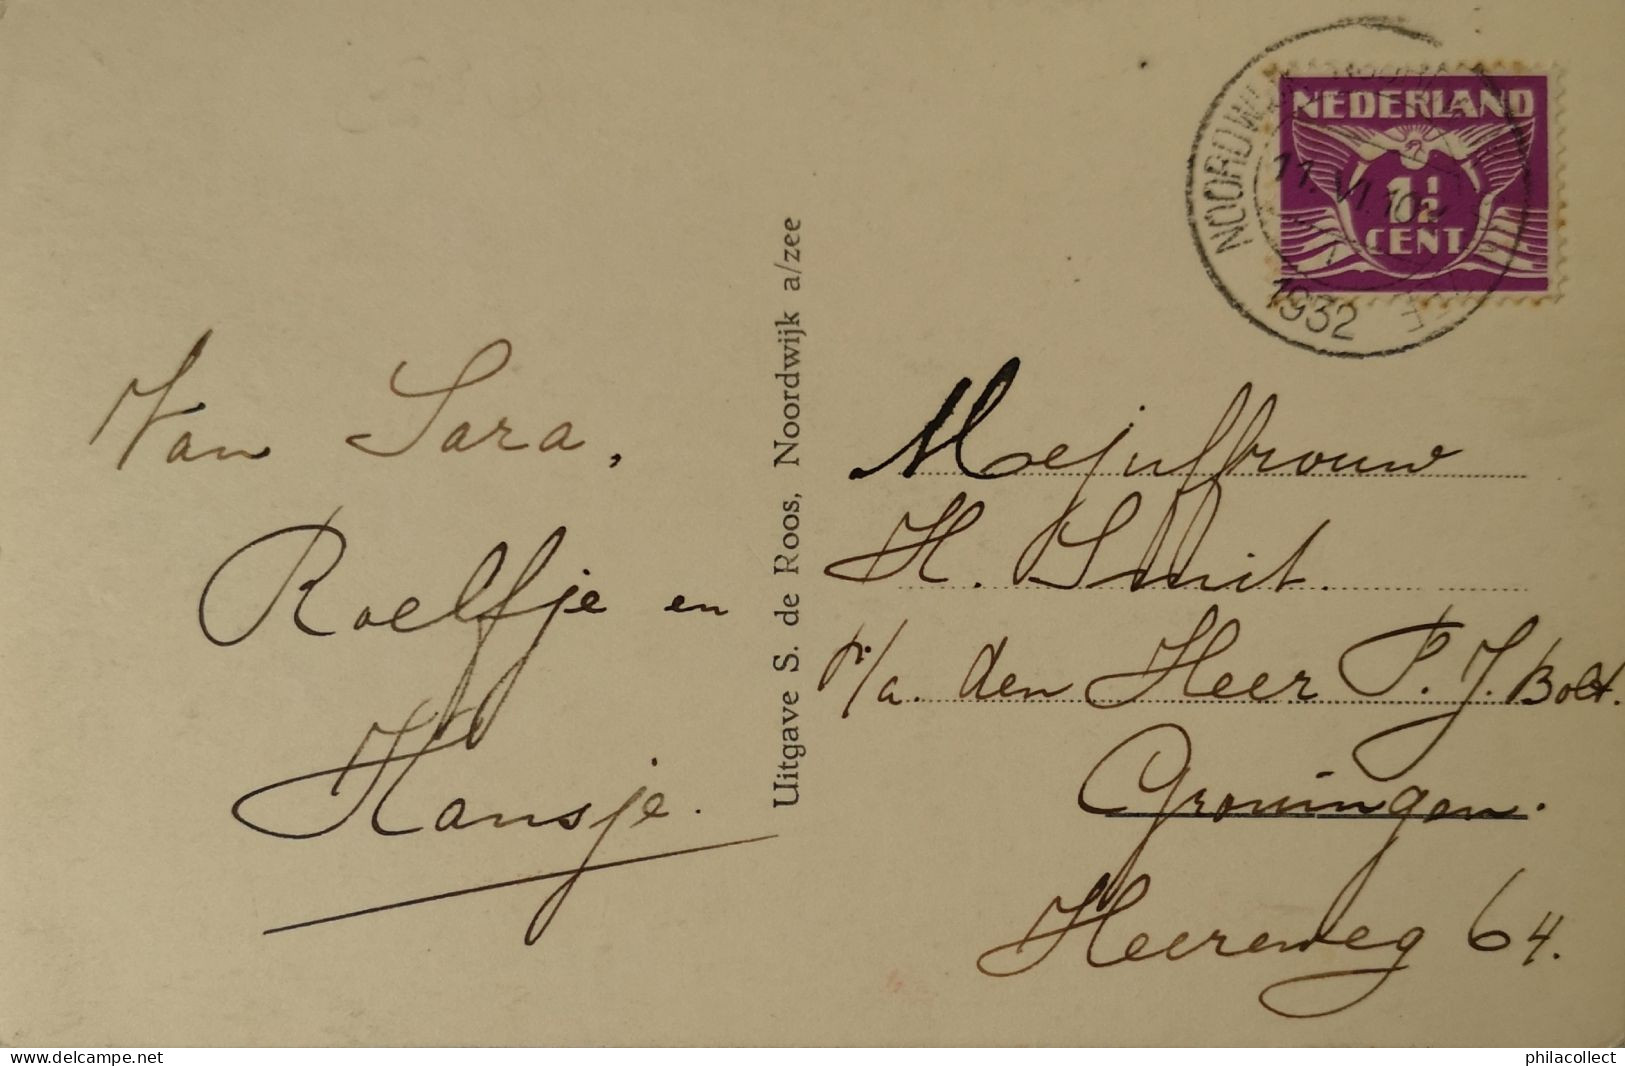 NEDERLAND
1½
CENT
1932
Van Sara,
Roelfje en
Hansje.
Uitgave S. de Roos, Noordwijk a/zee
Mejuffrouw
H. Smit.
p/a. den Heer P. J. Bolt.
Groningen.
Heereweg 64.
delcampe.net
philacollect